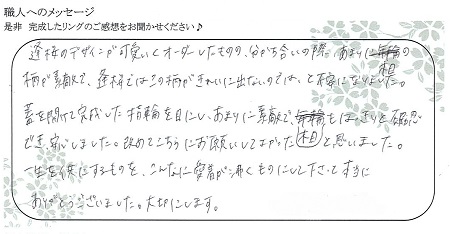 職人へのメッセージ
是非 完成したリングのご感想をお聞かせください♪
蓬桜のデザインが可愛いくオーダーしたものの、分かち合いの際、あまりに杢目の
柄が素敵で、蓬桜ではこの柄がきれいに出ないのでは、と不安になりました。
蓋を開けて完成した指輪を目にし、あまりに素敵で、杢目もはっきりと確認
でき、安心しました。改めてこちらにお願いしてよかったと思いました。
一生を供にするものを、こんなに愛着が沸くものにして下さって本当に
ありがとうございました。大切にします。